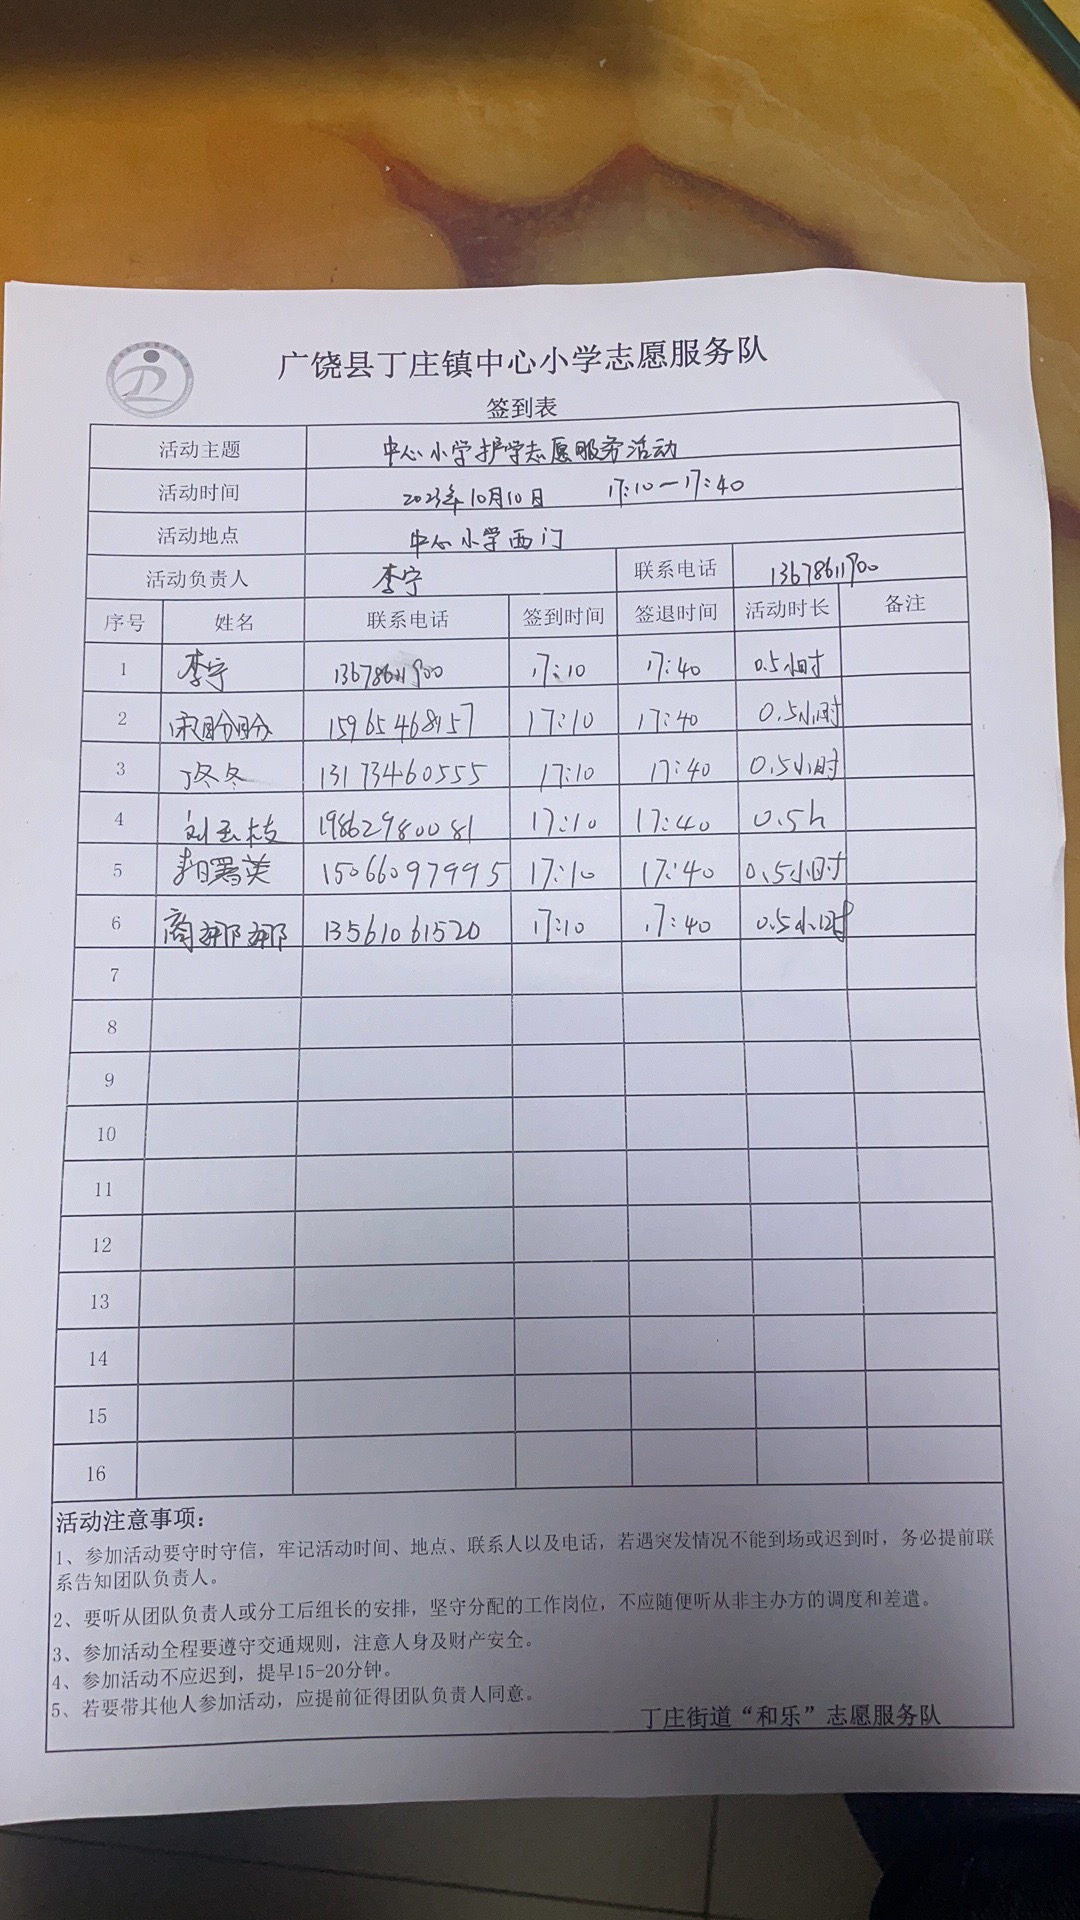 广饶县丁庄镇中心小学志愿服务队
签到表
活动主题 中心小学护学志愿服务活动
活动时间 2023年10月10日 17:10-17:40
活动地点 中心小学西门
活动负责人 李宁 联系电话 13678611900
序号 姓名 联系电话 签到时间 签退时间 活动时长 备注
1 李宁 13678611900 17:10 17:40 0.5小时
2 宋盼盼 15965468157 17:10 17:40 0.5小时
3 丁冬冬 13173460555 17:10 17:40 0.5小时
4 刘玉枝 19862980081 17:10 17:40 0.5h
5 15066097995 17:10 17:40 0.5小时
6 商娜娜 13561061520 17:10 17:40 0.5小时
7
8
9
10
11
12
13
14
15
16
活动注意事项：
1、参加活动要守时守信，牢记活动时间、地点、联系人以及电话，若遇突发情况不能到场或迟到时，务必提前联
系告知团队负责人。
2、要听从团队负责人或分工后组长的安排，坚守分配的工作岗位，不应随便听从非主办方的调度和差遣。
3、参加活动全程要遵守交通规则，注意人身及财产安全。
4、参加活动不应迟到，提早15-20分钟。
5、若要带其他人参加活动，应提前征得团队负责人同意。
丁庄街道“和乐”志愿服务队